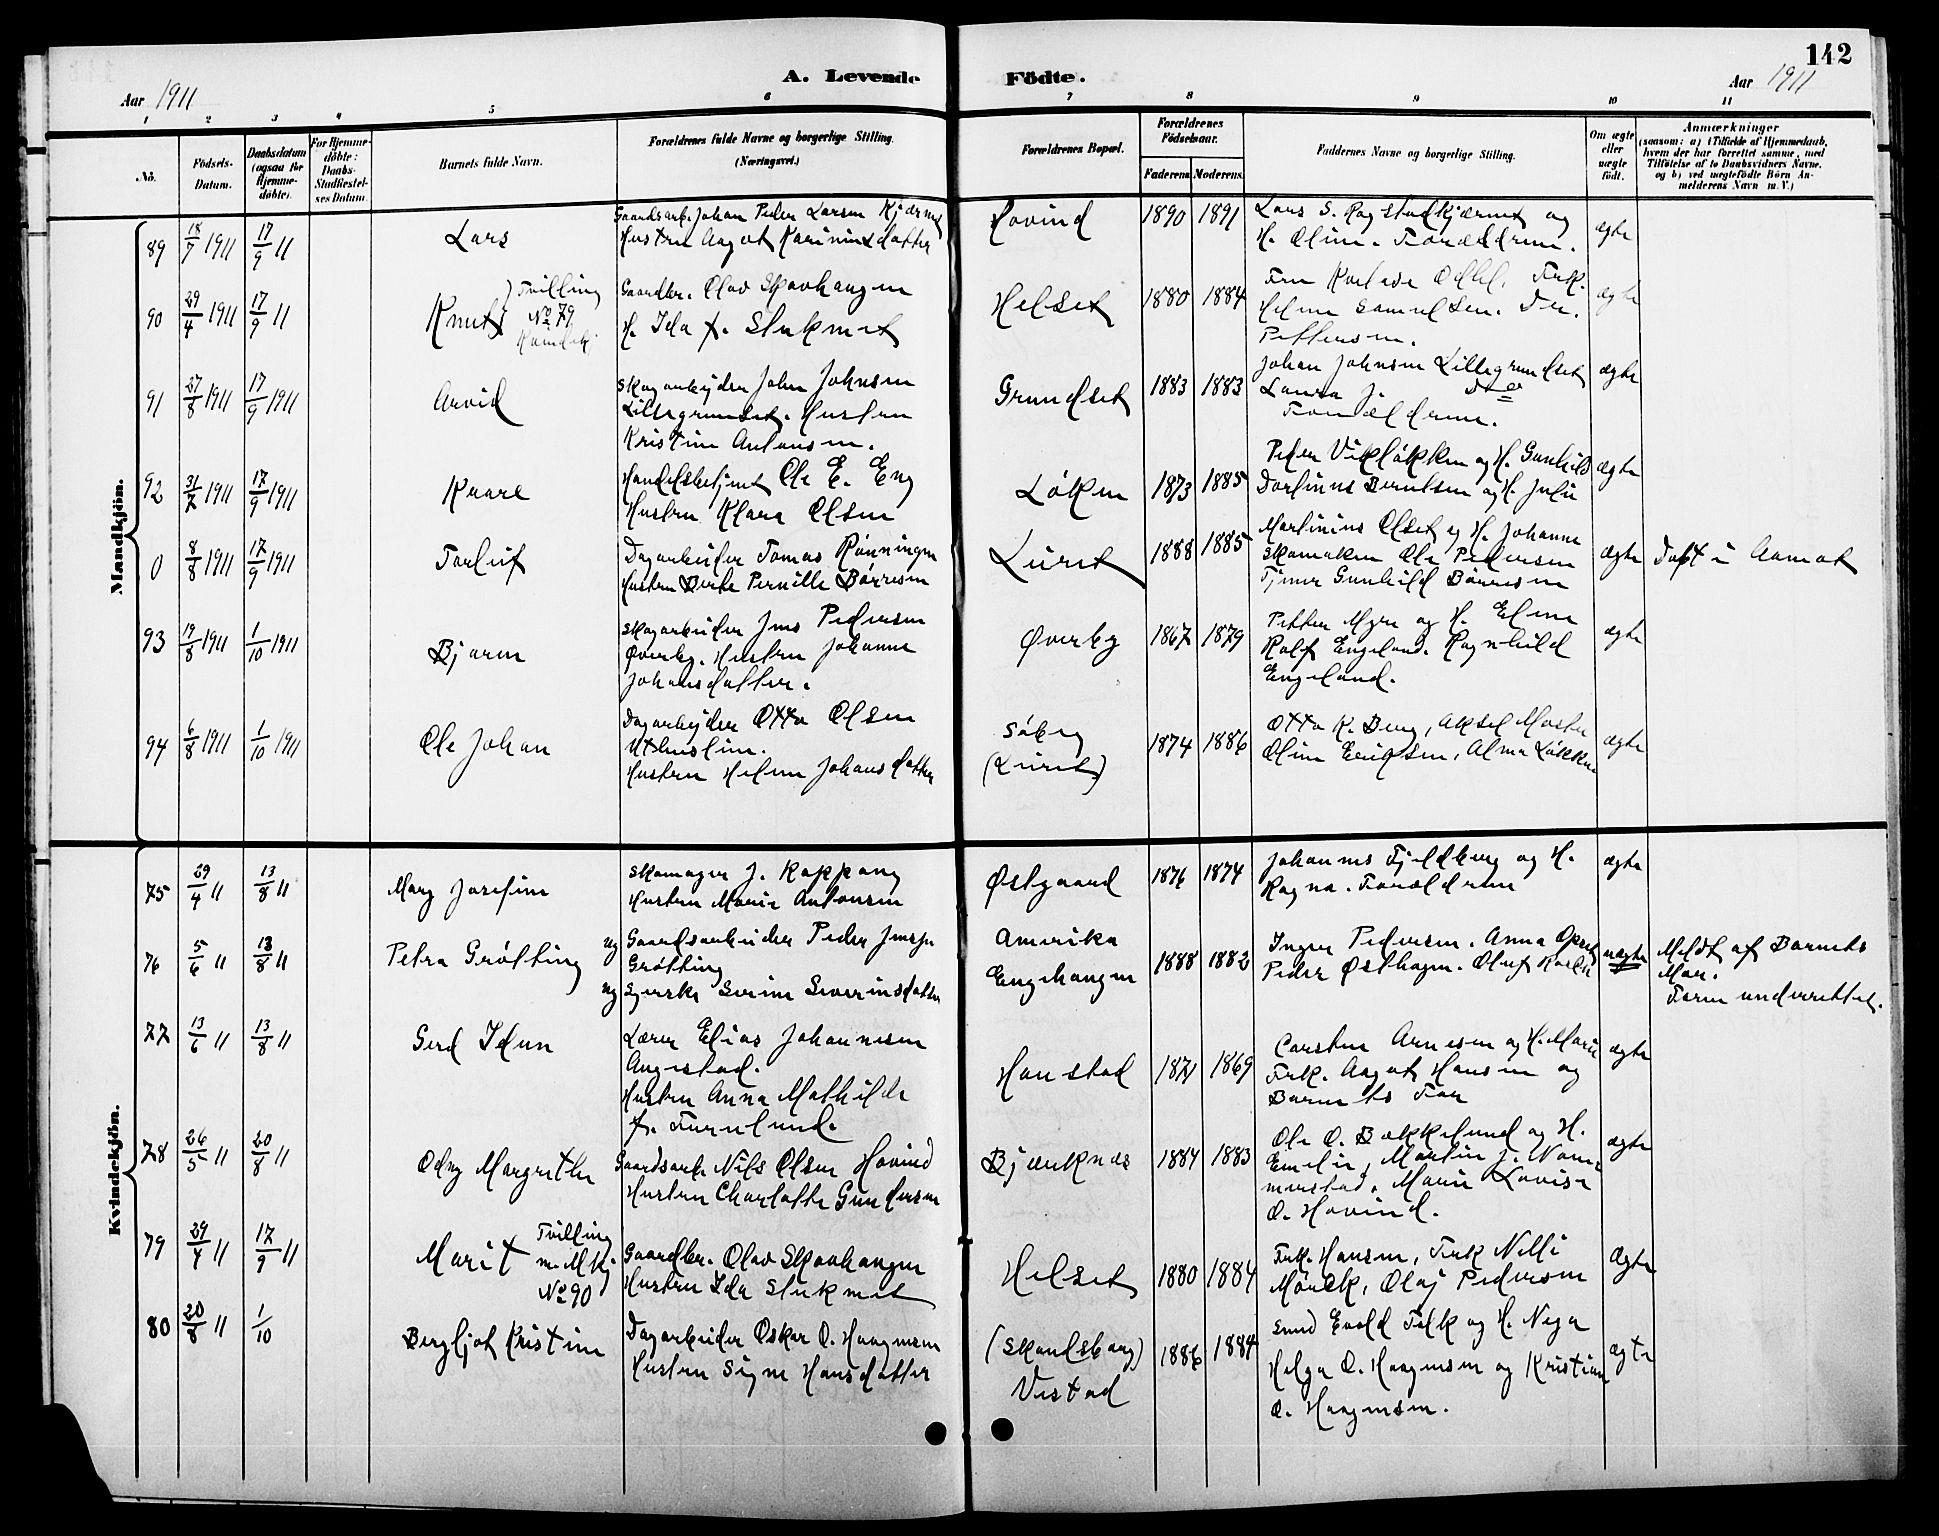 142
A. Levende Födte.
Aar 1911
Aar 1911
1 2 3 4 5 6 7 8 9 10 11
No.
Födsels-
Datum.
Daabsdatum
(ogsaa for
Hjemme-
döbte).
For Hjemme-
döbte:
Daabs-
Stadfæstel-
ses Datum.
Barnets fulde Navn.
Forældrenes fulde Navne og borgerlige Stilling.
(Næringsvei.)
Forældrenes Bopæl.
Forældrenes
Födselsaar.
Faderens. Moderens.
Faddernes Navne og borgerlige Stilling.
Om ægte
eller
uægte
født.
Anmærkninger
(saasom: a) i Tilfælde af Hjemmedaab,
hvem der har forrettet samme, med
Tilföielse af to Daabsvidners Navne,
og b) ved uægtefödte Börn An-
melderens Navn m. V.)
Mandkjön.
89 18/7 1911 17/9 11 Lars
Gaardsarb. Johan Peder Larsen Kjærnet
Hustru Aagot Karinusdatter
Hovind 1890 1891
Lars S. Ragstadkjærnet og
H. Oline. Forældrene.
ægte
90 29/4 1911 17/9 11 Knut
Tvilling
No 79
Kvindekj
Gaardbr. Olav Skovhaugen
H. Ida f. Stukmet
Helset 1880 1884
Helene Samuelsen.
Pettersen.
ægte
91 27/8 1911 17/9 1911 Arvid
Skogarbeyder John Johnsen
Lillegrundset. Hustru
Kristine Antonsen.
Grundset 1883 1883
Johan Johnsen Lillegrundset
Laura J. do
Forældrene.
ægte
92 31/7 1911 17/9 1911 Kaare
Handelsbetjent Ole E. Eng
Hustru Klara Olsen
Løken 1873 1885
Peder Vikløkken og H. Gunhild
Dorlinus Berntsen og H. Julie
ægte
0 8/8 1911 17/9 1911 Torleif
Dagarbeider Tomas Rønningen
Hustru Berte Pernille Børresen
Luret 1888 1885
Martinius Olset og H. Johanne
Skomaker Ole Pedersen
Tjener Gunhild Børresen
ægte
Født i Aamot
93 19/8 1911 1/10 1911 Bjarne
Skogarbeider Jens Pedersen
Øverby. Hustru Johanne
Johansdatter.
Øverby 1867 1879
Petter Myre og H. Eline
Rolf Engeland. Ragnhild
Engeland.
ægte
94 6/8 1911 1/10 1911 Ole Johan
Dagarbejder Otto Olsen
Uthuslien.
Hustru Helene Johansdatter
Søby
(Luret)
1874 1886
Otto K. Berg, Aksel Moster
Oline Eriksen, Alma Løkken
ægte
Kvindekjön.
75 29/4 11 13/8 11 Mary Josefine
Skomager J. Koppang
Hustru Marie Antonsen
Østgaard 1876 1874
Johannes Fjeldberg og H.
Ragna. Forældrene
ægte
76 5/6 11 13/8 11 Petra Grøtting
ug Gaardsarbeider Peder Jensen
Grøtting
ug Syerske Serine Severinsdatter
Amerika
Enghaugen
1888 1882
Inger Pedersen. Anna
Peder Østhagen. Oluf
uægte
Meldt af Barnets
Mor.
Faren underrettet.
77 13/6 11 13/8 11 Gerd Idun
Lærer Elias Johannesen
Angestad.
Hustru Anna Mathilde
f. Furulund.
Hanstad 1871 1869
Carsten Arnesen og H. Marie
Frk. Aagot Hansen og
Barnets Far
ægte
78 26/5 11 20/8 11 Odny Margrethe
Gaardsarb. Nils Olsen Hovind
Hustru Charlotte Gundersen
Bjærknes 1884 1883
Ole O. Bækkelund og H.
Emelie, Martin J. Nom-
merstad. Marie Lovise
O. Hovind.
ægte
79 29/4 11 17/9 11 Marit
Tvilling
m. Mkj
No 90
Gaardbr. Olav Skovhaugen
Hustru Ida Stukmet
Helset 1880 1884
Frk. Hansen, Frk Nilli
Mørck, Olaf Pedersen
Ægte
80 20/8 11 1/10 Bergljot Kristine
Dagarbeider Oskar O. Haagensen
Hustru Signe Hansdatter
(Skaulsberg)
Vestad
1886 1884
Smed Evald Falk og H.
Helga O. Haagensen og Kristian
O. Haagensen.
ægte